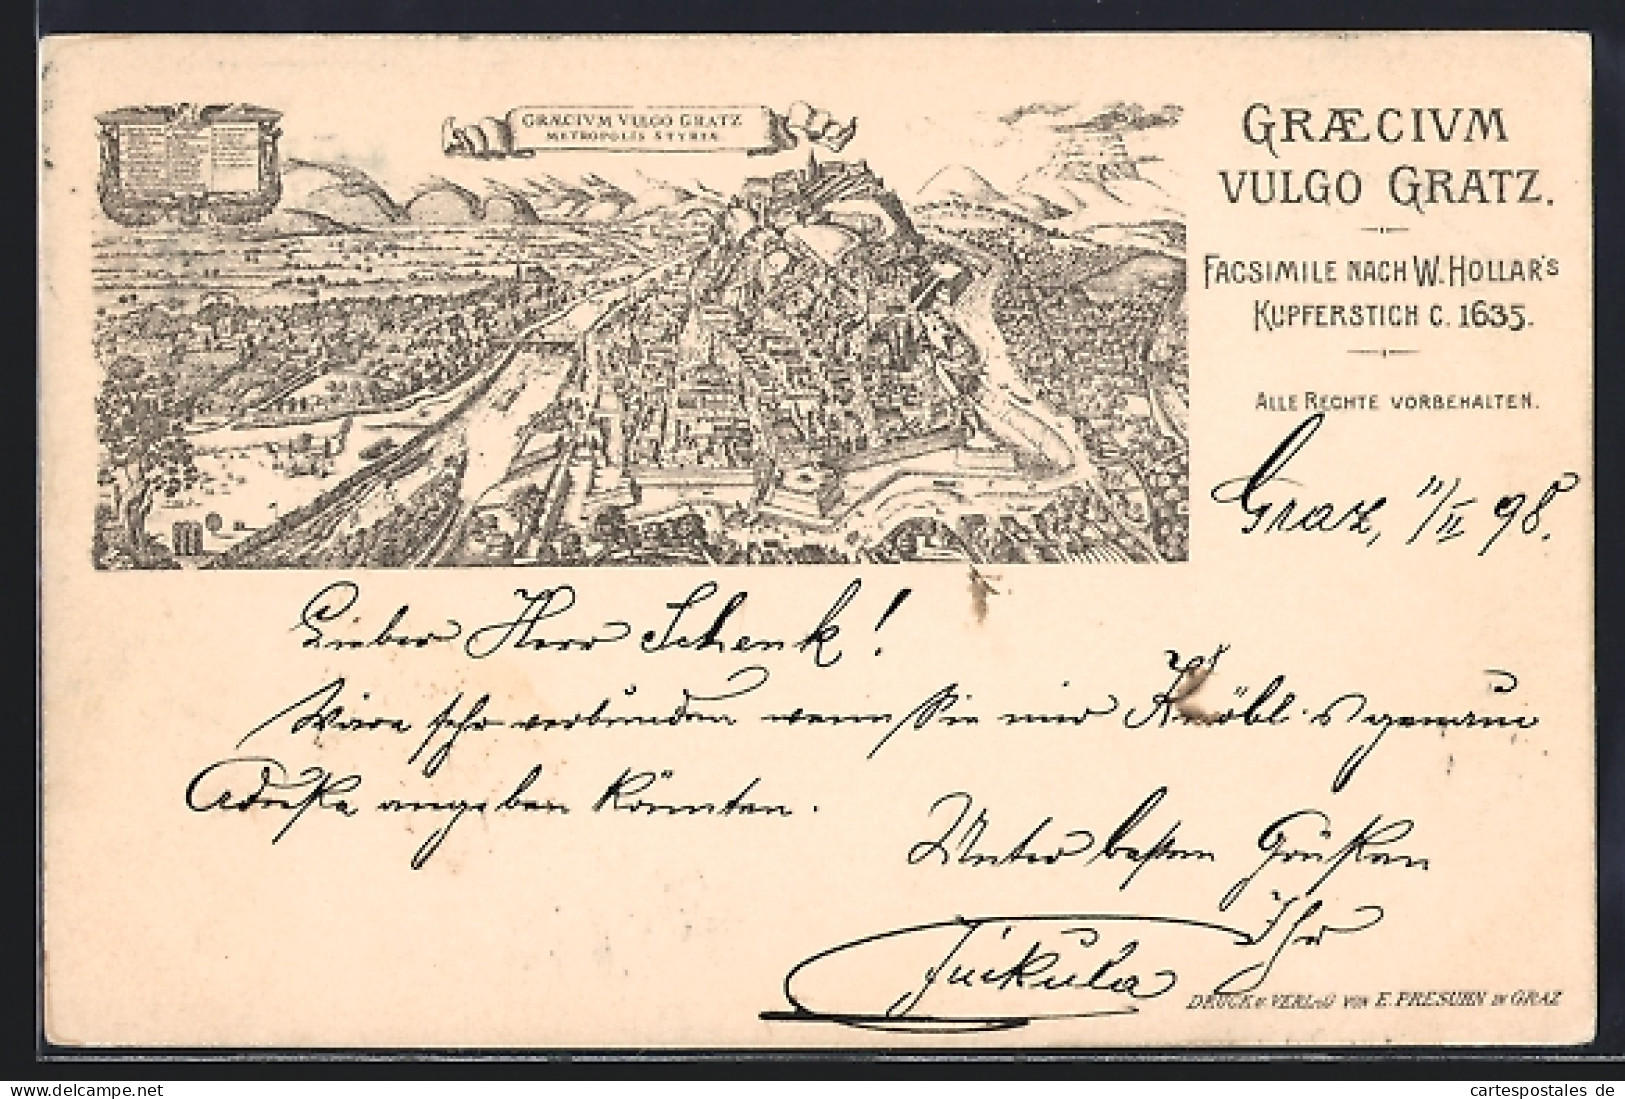 GRÆCIVM VULGO GRATZ
METROPOLIS STYRIÆ
GRÆCIVM
VULGO GRATZ.
FACSIMILE NACH W. HOLLAR'S
KUPFERSTICH C. 1635.
ALLE RECHTE VORBEHALTEN.
Graz, 11/II 98.
Lieber Herr Schenk!
Wäre sehr verbunden wenn Sie mir Knöbl's genaue
Adresse angeben könnten.
Unter besten Grüßen
Ihr
DRUCK U. VERLAG VON E. PRESUHN IN GRAZ
delcampe.net
cartespostales de